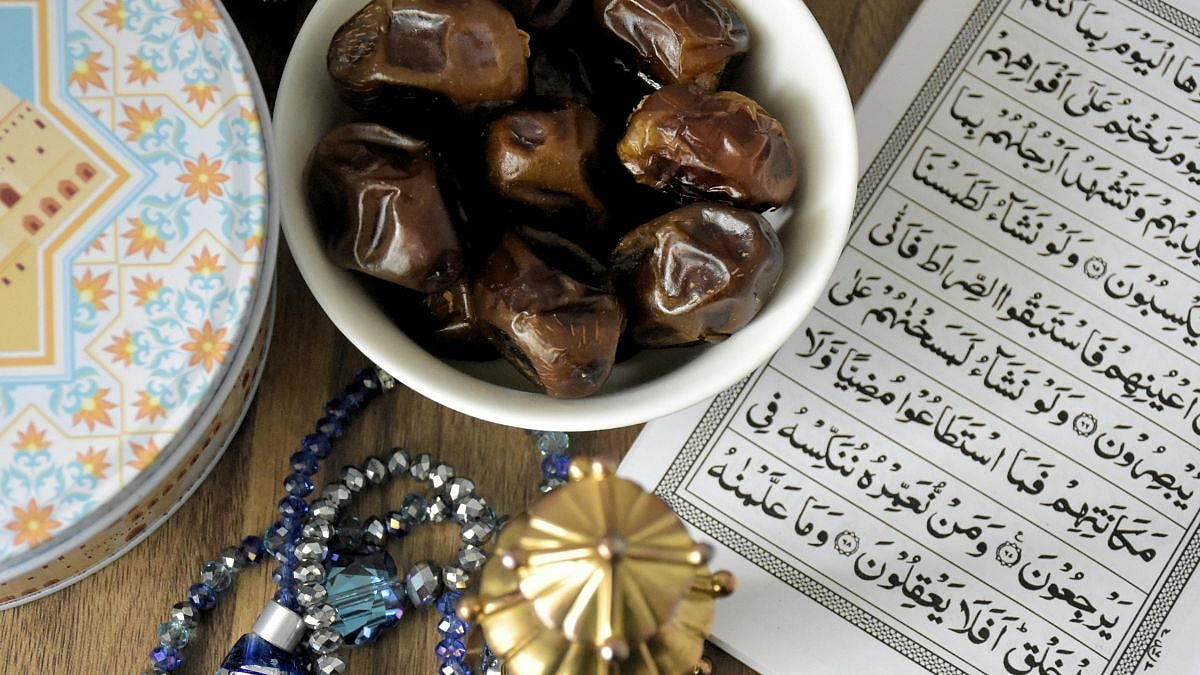 الْيَوْمَ بِمَا كُنْتُمْ
نَخْتِمُ عَلٰٓى اَفْوَاهِهِمْ
وَتَشْهَدُ اَرْجُلُهُمْ بِمَا
يَكْسِبُوْنَ ۝۶۵ وَلَوْ نَشَآءُ لَطَمَسْنَا
اَعْيُنِهِمْ فَاسْتَبَقُوا الصِّرَاطَ فَاَنّٰى
يُبْصِرُوْنَ ۝۶۶ وَلَوْ نَشَآءُ لَمَسَخْنٰهُمْ عَلٰى
مَكَانَتِهِمْ فَمَا اسْتَطَاعُوْا مُضِيًّا وَّلَا
يَرْجِعُوْنَ ۝۶۷ وَمَنْ نُّعَمِّرْهُ نُنَكِّسْهُ فِى
الْخَلْقِ اَفَلَا يَعْقِلُوْنَ ۝۶۸ وَمَا عَلَّمْنٰهُ